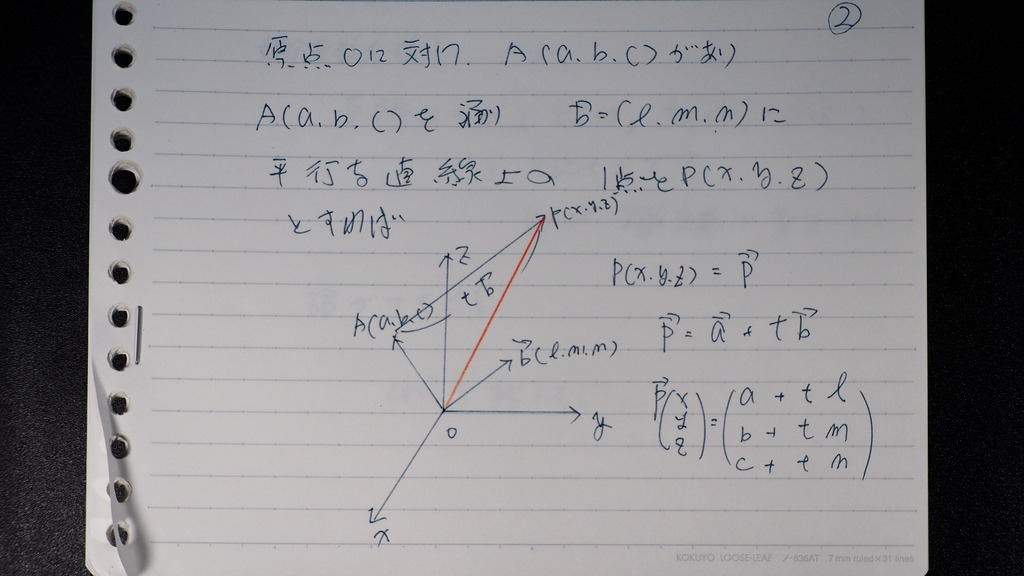 ②
原点Oに対し. A(a.b.c)があり
A(a.b.c)を通り b⃗=(l.m.n)に
平行な直線上の 1点をP(x.y.z)
とすれば
P(x.y.z)
z
t b⃗
A(a.b.c)
b⃗(l.m.n)
y
O
x
P(x.y.z) = p⃗
p⃗ = a⃗ + t b⃗
p⃗(x y z) = (a + t l
b + t m
c + t n)
KOKUYO LOOSE-LEAF ノ-836AT 7 mm ruled×31 lines